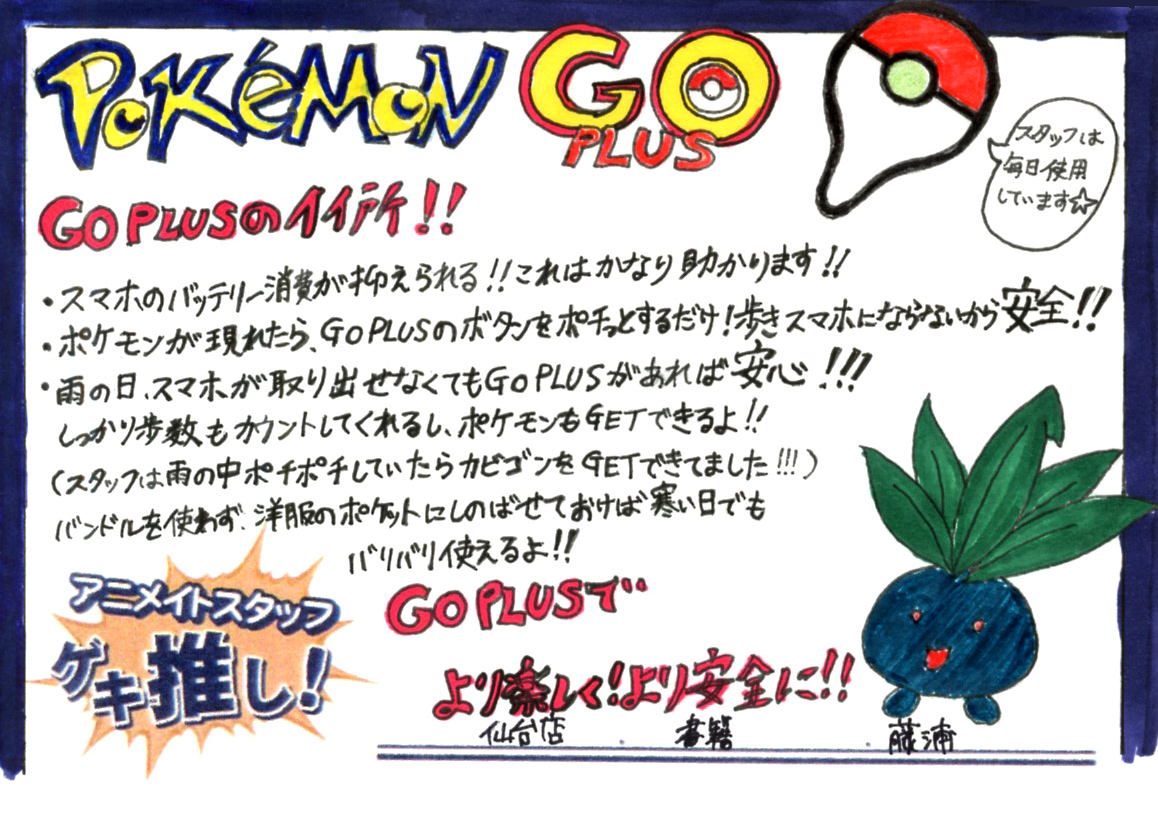 POKéMON GO
PLUS
スタッフは
毎日使用
しています☆
GO PLUSのイイ所!!
・スマホのバッテリー消費が抑えられる!!これはかなり助かります!!
・ポケモンが現れたら、GO PLUSのボタンをポチっとするだけ!歩きスマホにならないから安全!!
・雨の日、スマホが取り出せなくてもGO PLUSがあれば安心!!!
しっかり歩数もカウントしてくれるし、ポケモンもGETできるよ!!
(スタッフは雨の中ポチポチしていたらカビゴンをGETできてました!!!)
バンドルを使わず、洋服のポケットにしのばせておけば寒い日でも
バリバリ使えるよ!!
アニメイトスタッフ
ゲキ推し!
GO PLUSで
より楽しく!より安全に!!
仙台店 書籍 藤浦